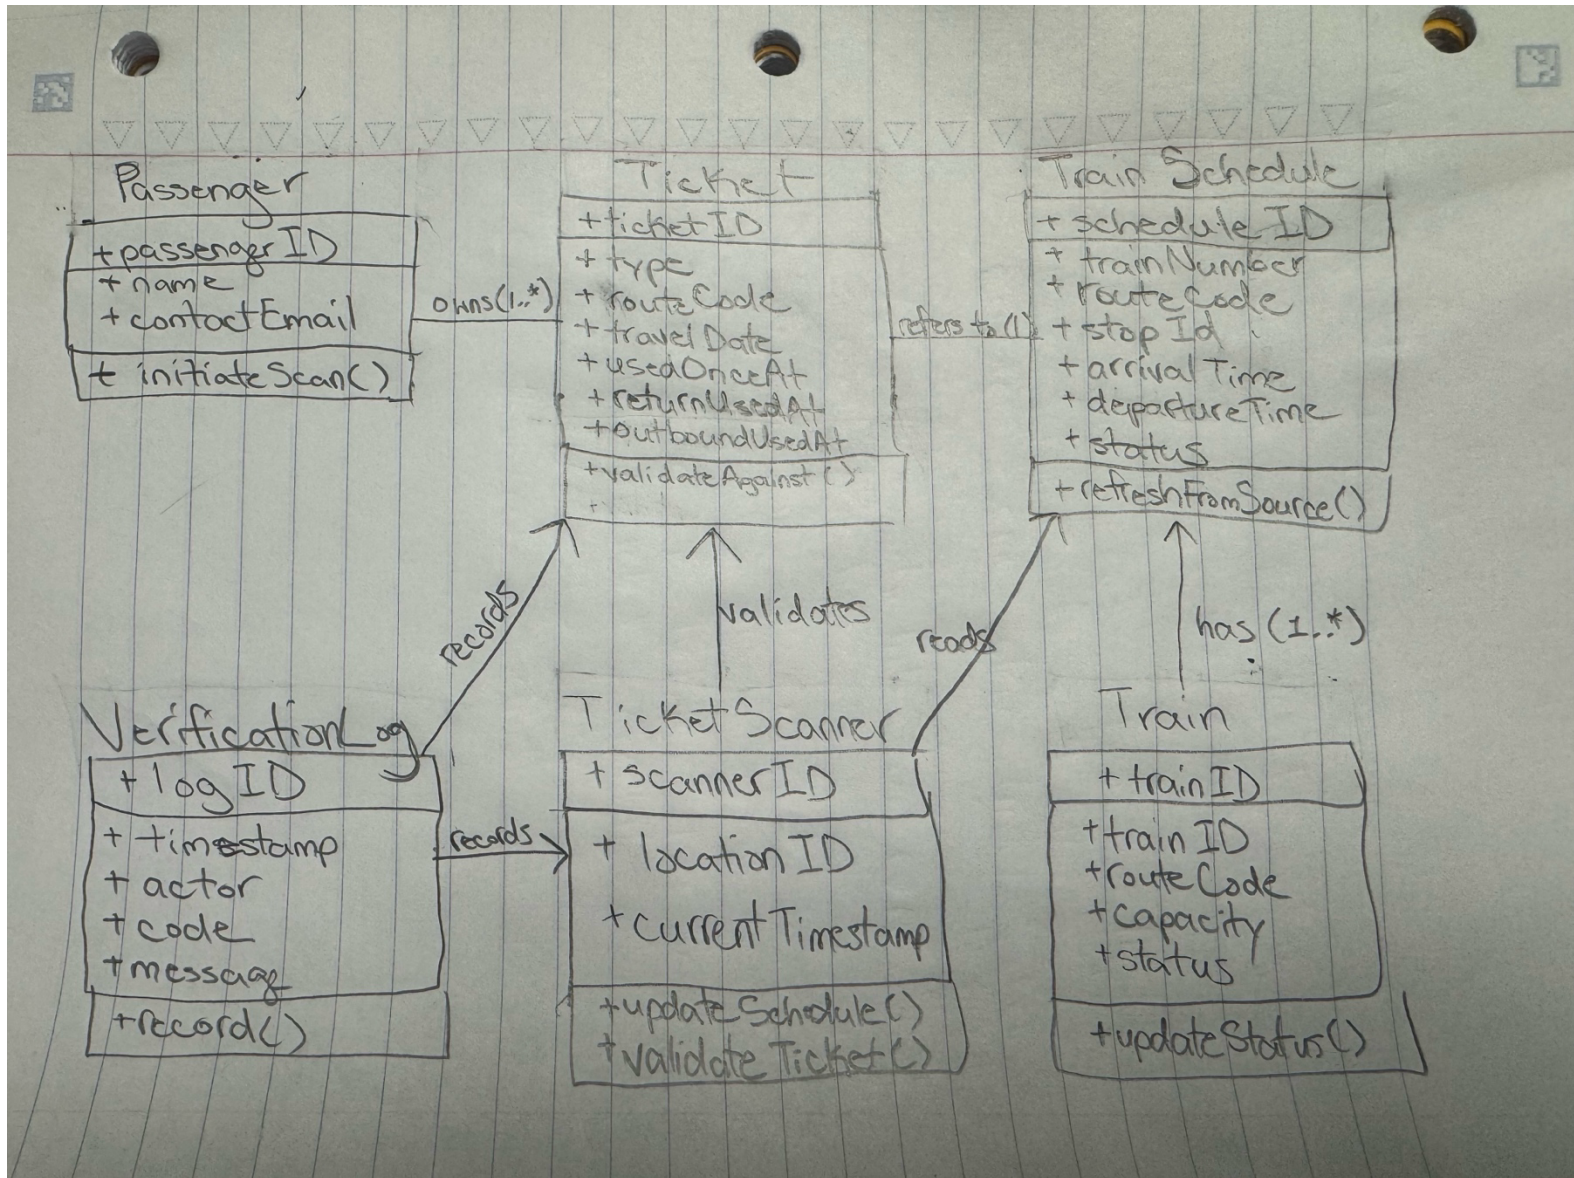 Passenger
+passengerID
+name
+contactEmail
+ initiateScan()
owns(1..*)
Ticket
+ticketID
+type
+routeCode
+travelDate
+usedOnceAt
+returnUsedAt
+outboundUsedAt
+validateAgainst()
refers to (1)
Train Schedule
+scheduleID
+trainNumber
+routeCode
+stopId
+arrivalTime
+departureTime
+status
+refreshFromSource()
records
validates
reads
has (1..*)
VerificationLog
+logID
+timestamp
+actor
+code
+message
+record()
records
TicketScanner
+scannerID
+locationID
+currentTimestamp
+updateSchedule()
+validateTicket()
Train
+trainID
+trainID
+routeCode
+capacity
+status
+updateStatus()